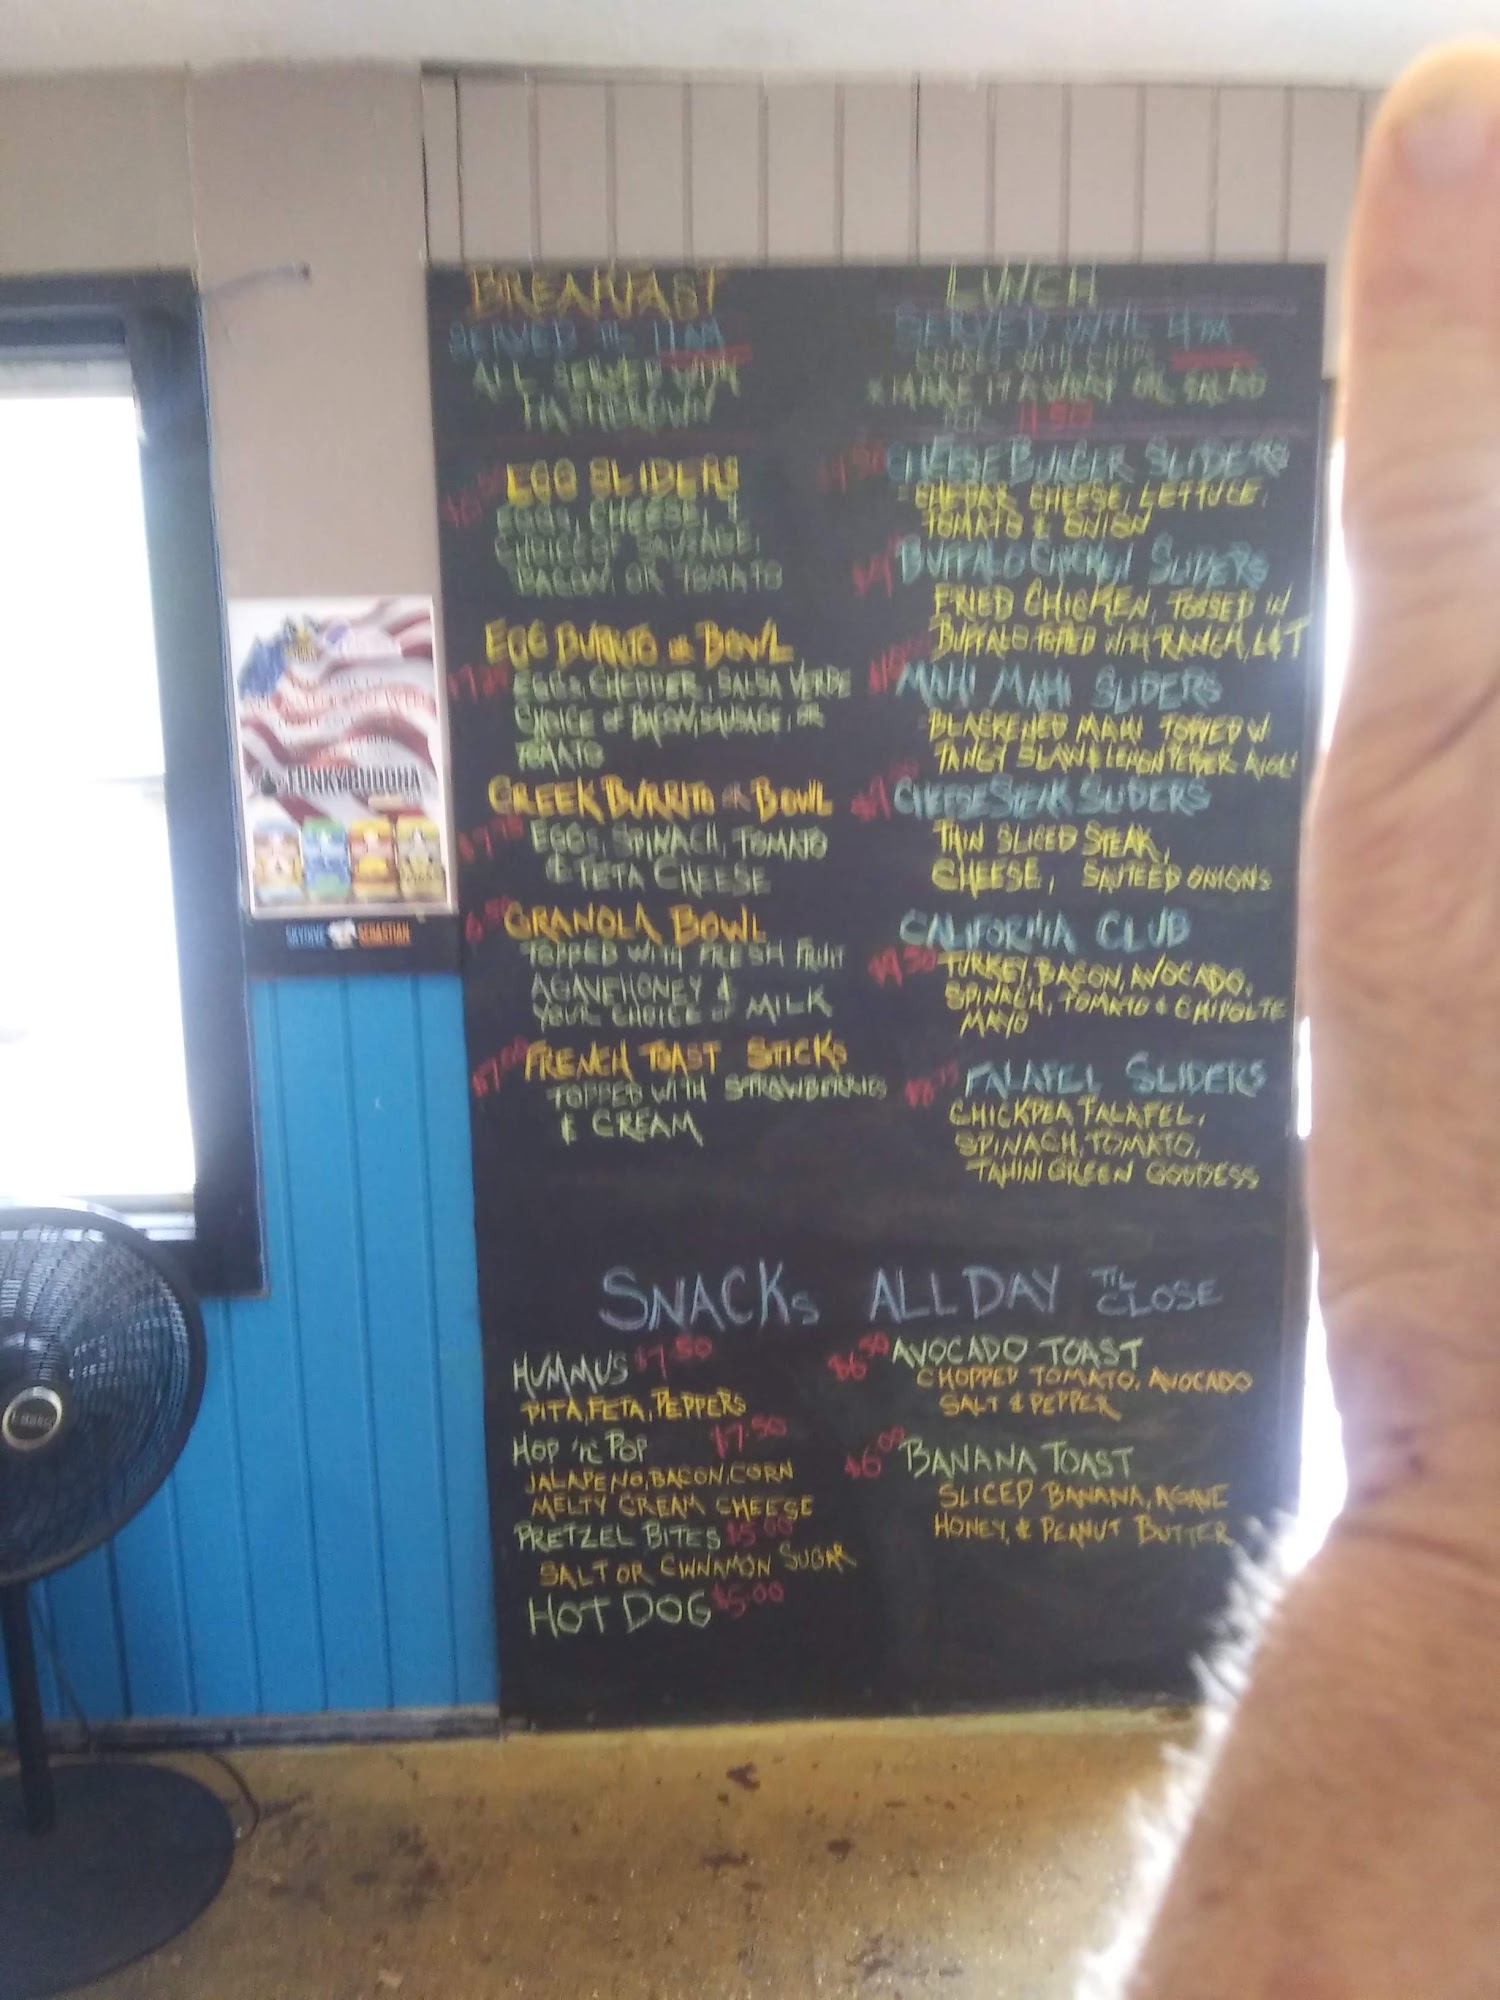 BREAKFAST
SERVED TIL 11AM
ALL SERVED WITH
HASHBROWN
EGG SLIDERS
EGGS, CHEESE, &
CHOICE OF SAUSAGE,
BACON, OR TOMATO
EGG BURRITO OR BOWL
EGGS, CHEDDER, SALSA VERDE
CHOICE OF BACON, SAUSAGE, OR
TOMATO
GREEK BURRITO OR BOWL
EGGS, SPINACH, TOMATO
& FETA CHEESE
GRANOLA BOWL
TOPPED WITH FRESH FRUIT
AGAVE HONEY &
YOUR CHOICE OF MILK
$7.00 FRENCH TOAST STICKS
TOPPED WITH STRAWBERRIES
& CREAM
LUNCH
SERVED UNTIL 4PM
COMES WITH CHIPS
* MAKE IT A WRAP OR SALAD
FOR
CHEESE BURGER SLIDERS
- CHEDAR CHEESE, LETTUCE,
TOMATO & ONION
BUFFALO CHICKEN SLIDERS
FRIED CHICKEN, TOSSED IN
BUFFALO TOPPED WITH RANCH, L&T
MAHI MAHI SLIDERS
- BLACKENED MAHI TOPPED W
TANGY SLAW & LEMON PEPPER AIOLI
CHEESESTEAK SLIDERS
THIN SLICED STEAK,
CHEESE, SAUTEED ONIONS
CALIFORNIA CLUB
$9.50 TURKEY, BACON, AVOCADO,
SPINACH, TOMATO & CHIPOLTE
MAYO
FALAFEL SLIDERS
CHICKPEA FALAFEL,
SPINACH, TOMATO,
TAHINI GREEN GODDESS
SNACKS ALL DAY TIL CLOSE
HUMMUS $7.50
PITA, FETA, PEPPERS
HOP 'N POP $7.50
JALAPENO, BACON, CORN
MELTY CREAM CHEESE
PRETZEL BITES $5.00
SALT OR CINNAMON SUGAR
HOT DOG $5.00
$6.50 AVOCADO TOAST
CHOPPED TOMATO, AVOCADO
SALT & PEPPER
$6.00 BANANA TOAST
SLICED BANANA, AGAVE
HONEY, & PEANUT BUTTER
FUNKY BUDDHA
SKYDIVE SEBASTIAN
Lasko